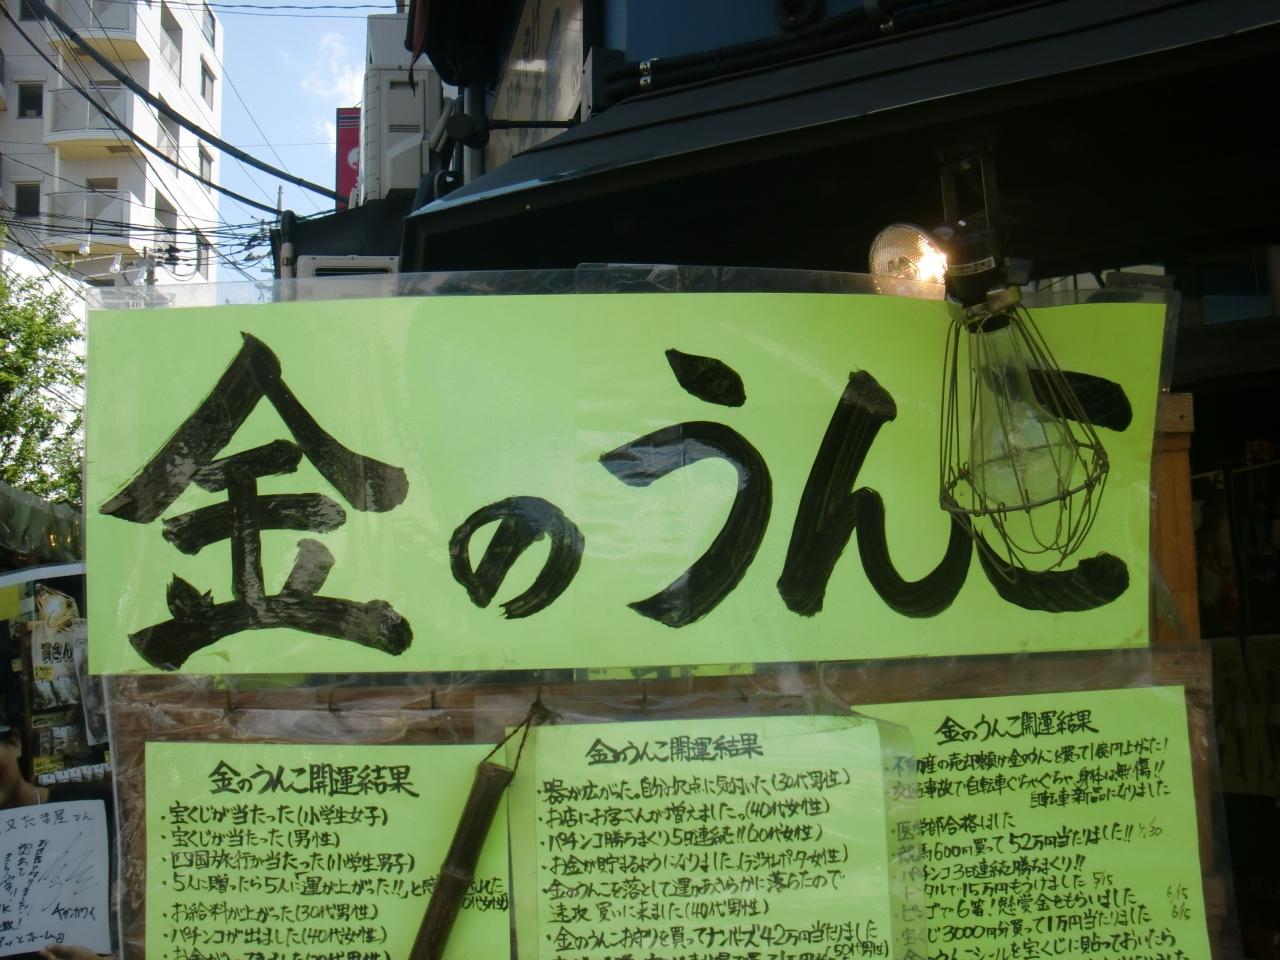 金のうんこ
金のうんこ開運結果
・宝くじが当たった(小学生女子)
・宝くじが当たった(男性)
・四国旅行が当たった(小学生男子)
・5人に贈ったら5人に運が上がった!!、と
・お給料が上がった(30代男性)
・パチンコが出ました(40代女性)
金のうんこ開運結果
・器が広がった。自分の欠点に気付いた(30代男性)
・お店にお客さんが増えました。(40代女性)
・パチンコ勝ちまくり5日連続!!(60代女性)
・お金が貯まるようになりました。(ラジオレポーター女性)
・金のうんこを落として運があきらかに落ちたので
速攻買いに来ました(40代男性)
・金のうんこお守りを買ってナンバーズ42万当たりました
(50代男性)
金のうんこ開運結果
不動産の売却額が金のうんこを買って1億円上がった!
交通事故で自転車ぐちゃぐちゃ、身体は無傷!!
自転車新品になりました
・医学部合格しました
競馬600円買って52万当たりました!! 1/30
パチンコ3日連続勝ちまくり!!
トータルで15万円もうけました 5/5
ビンゴで6等!懸賞金をもらいました 6/5
宝くじ3000円分買って1万円当たりました 6/5
金のうんこシールを宝くじに貼っておいたら
又たま屋さん